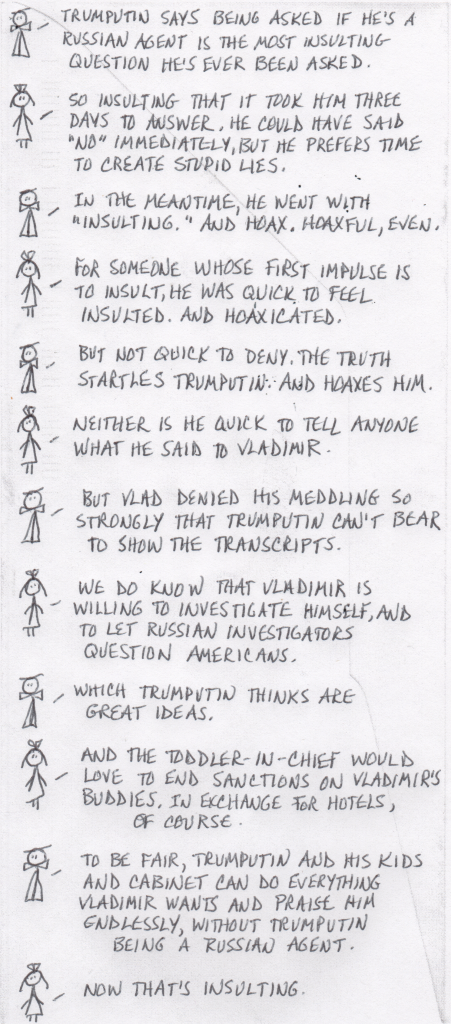 TRUMPUTIN SAYS BEING ASKED IF HE'S A
RUSSIAN AGENT IS THE MOST INSULTING
QUESTION HE'S EVER BEEN ASKED.
SO INSULTING THAT IT TOOK HIM THREE
DAYS TO ANSWER. HE COULD HAVE SAID
"NO" IMMEDIATELY, BUT HE PREFERS TIME
TO CREATE STUPID LIES.
IN THE MEANTIME, HE WENT WITH
"INSULTING." AND HOAX. HOAXFUL, EVEN.
FOR SOMEONE WHOSE FIRST IMPULSE IS
TO INSULT, HE WAS QUICK TO FEEL
INSULTED. AND HOAXICATED.
BUT NOT QUICK TO DENY. THE TRUTH
STARTLES TRUMPUTIN. AND HOAXES HIM.
NEITHER IS HE QUICK TO TELL ANYONE
WHAT HE SAID TO VLADIMIR.
BUT VLAD DENIED HIS MEDDLING SO
STRONGLY THAT TRUMPUTIN CAN'T BEAR
TO SHOW THE TRANSCRIPTS.
WE DO KNOW THAT VLADIMIR IS
WILLING TO INVESTIGATE HIMSELF, AND
TO LET RUSSIAN INVESTIGATORS
QUESTION AMERICANS.
WHICH TRUMPUTIN THINKS ARE
GREAT IDEAS.
AND THE TODDLER-IN-CHIEF WOULD
LOVE TO END SANCTIONS ON VLADIMIR'S
BUDDIES. IN EXCHANGE FOR HOTELS,
OF COURSE.
TO BE FAIR, TRUMPUTIN AND HIS KIDS
AND CABINET CAN DO EVERYTHING
VLADIMIR WANTS AND PRAISE HIM
ENDLESSLY, WITHOUT TRUMPUTIN
BEING A RUSSIAN AGENT.
NOW THAT'S INSULTING.